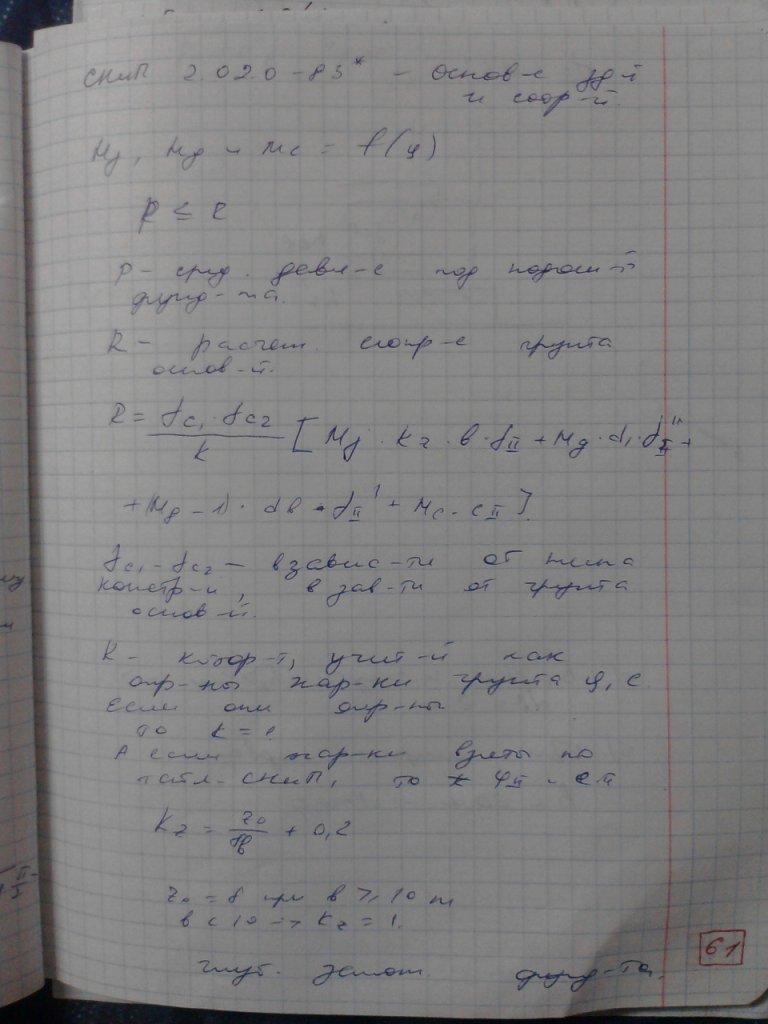 СНиП 2.02.0-83* - основ-е зд-й
и соор-й.
Mγ, Mg и Mc = f(φ)
P ≤ R
P - сред. давл-е под подош-й
фунд-та.
R - расчет. сопр-е грунта
основ-й.
R = γc₁·γc₂ / k [Mγ·Kz·в·γII + Mg·d₁·γII' +
+(Mg-1)·dв·γII' + Mc·cII].
γc₁-γc₂ - в завис-ти от типа
констр-и, в зав-ти от грунта
основ-й.
K - коэф-т, учит-й как
опр-ны хар-ки грунта φ, c
Если они опр-ны
то k = 1
А если хар-ки взяты по
табл. СНиП, то φII и cII
Kz = z₀/в + 0,2
z₀ = 8 при в ≥ 10 m
в < 10 -> Kz = 1.
глуб. залож. фунд-та.
61